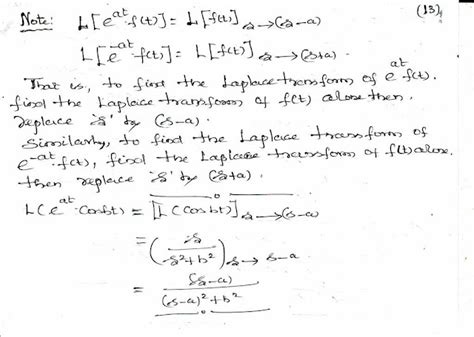 Note: L[e^{at} f(t)] = L[f(t)]_{s→(s-a)} (13)
L[e^{-at} f(t)] = L[f(t)]_{s→(s+a)}
That is, to find the Laplace transform of e^{at} f(t).
find the Laplace transform of f(t) alone then
replace 's' by (s-a).
Similarly, to find the Laplace transform of
e^{-at} f(t), find the Laplace transform of f(t) alone.
then replace 's' by (s+a).
L(e^{at} Cosbt) = [L(Cosbt)]_{s→(s-a)}
= (s / s²+b²)_{s→s-a}
= (s-a) / (s-a)²+b²